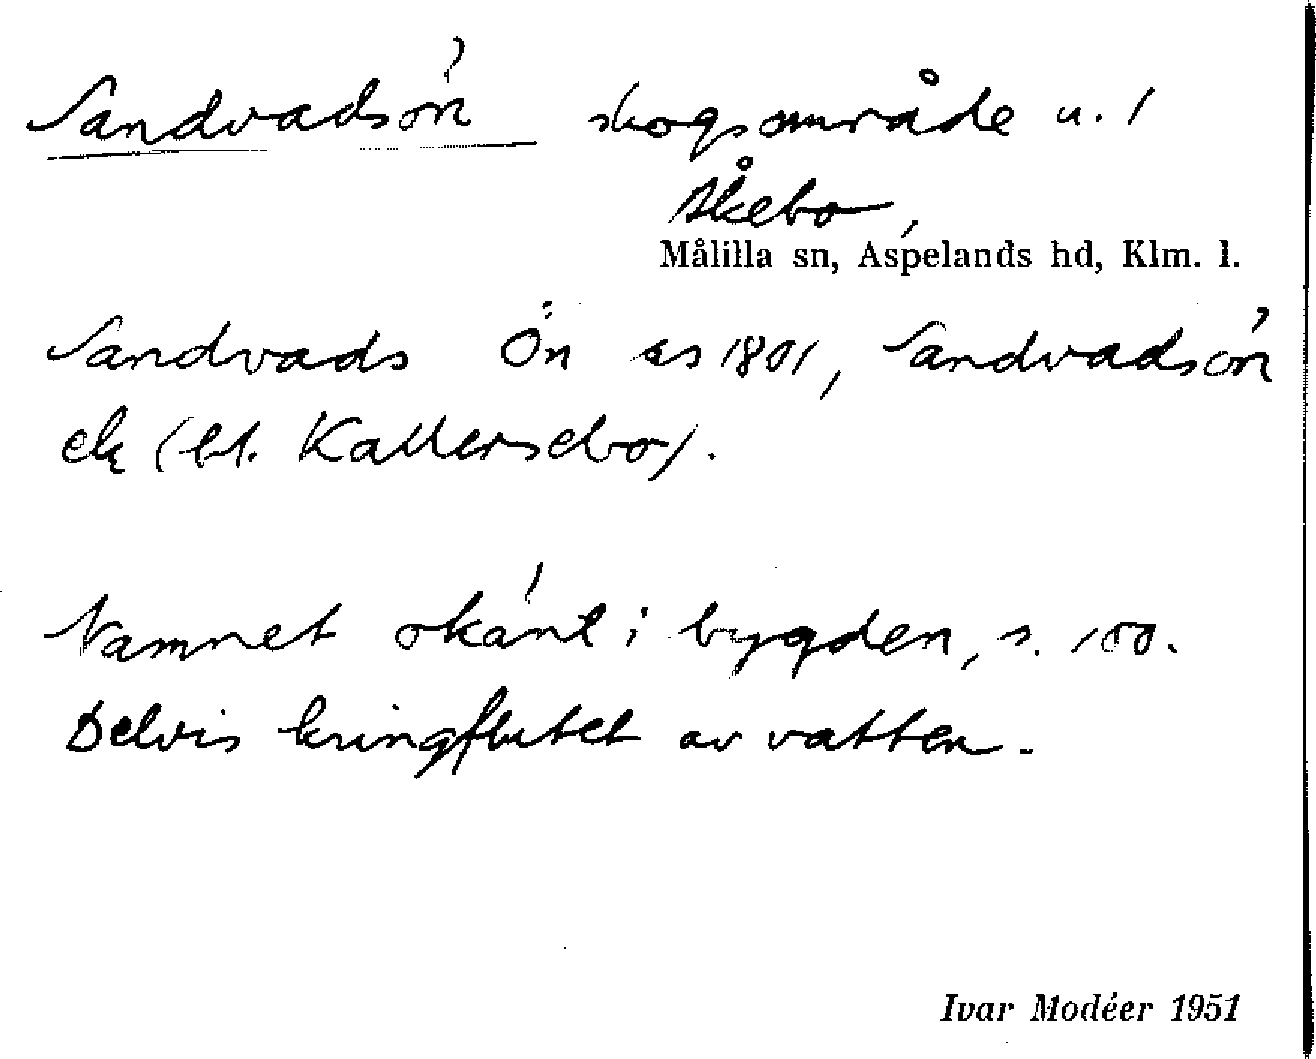 Sandvadsön skogsområde u. /
Åkebo,
Målilla sn, Aspelands hd, Klm. l.
Sandvads Ön as 1801, Sandvadsön
ek (bl. Kallersebo).
Namnet okänt i bygden, s. 100.
Delvis kringflutet av vatten.
Ivar Modéer 1951